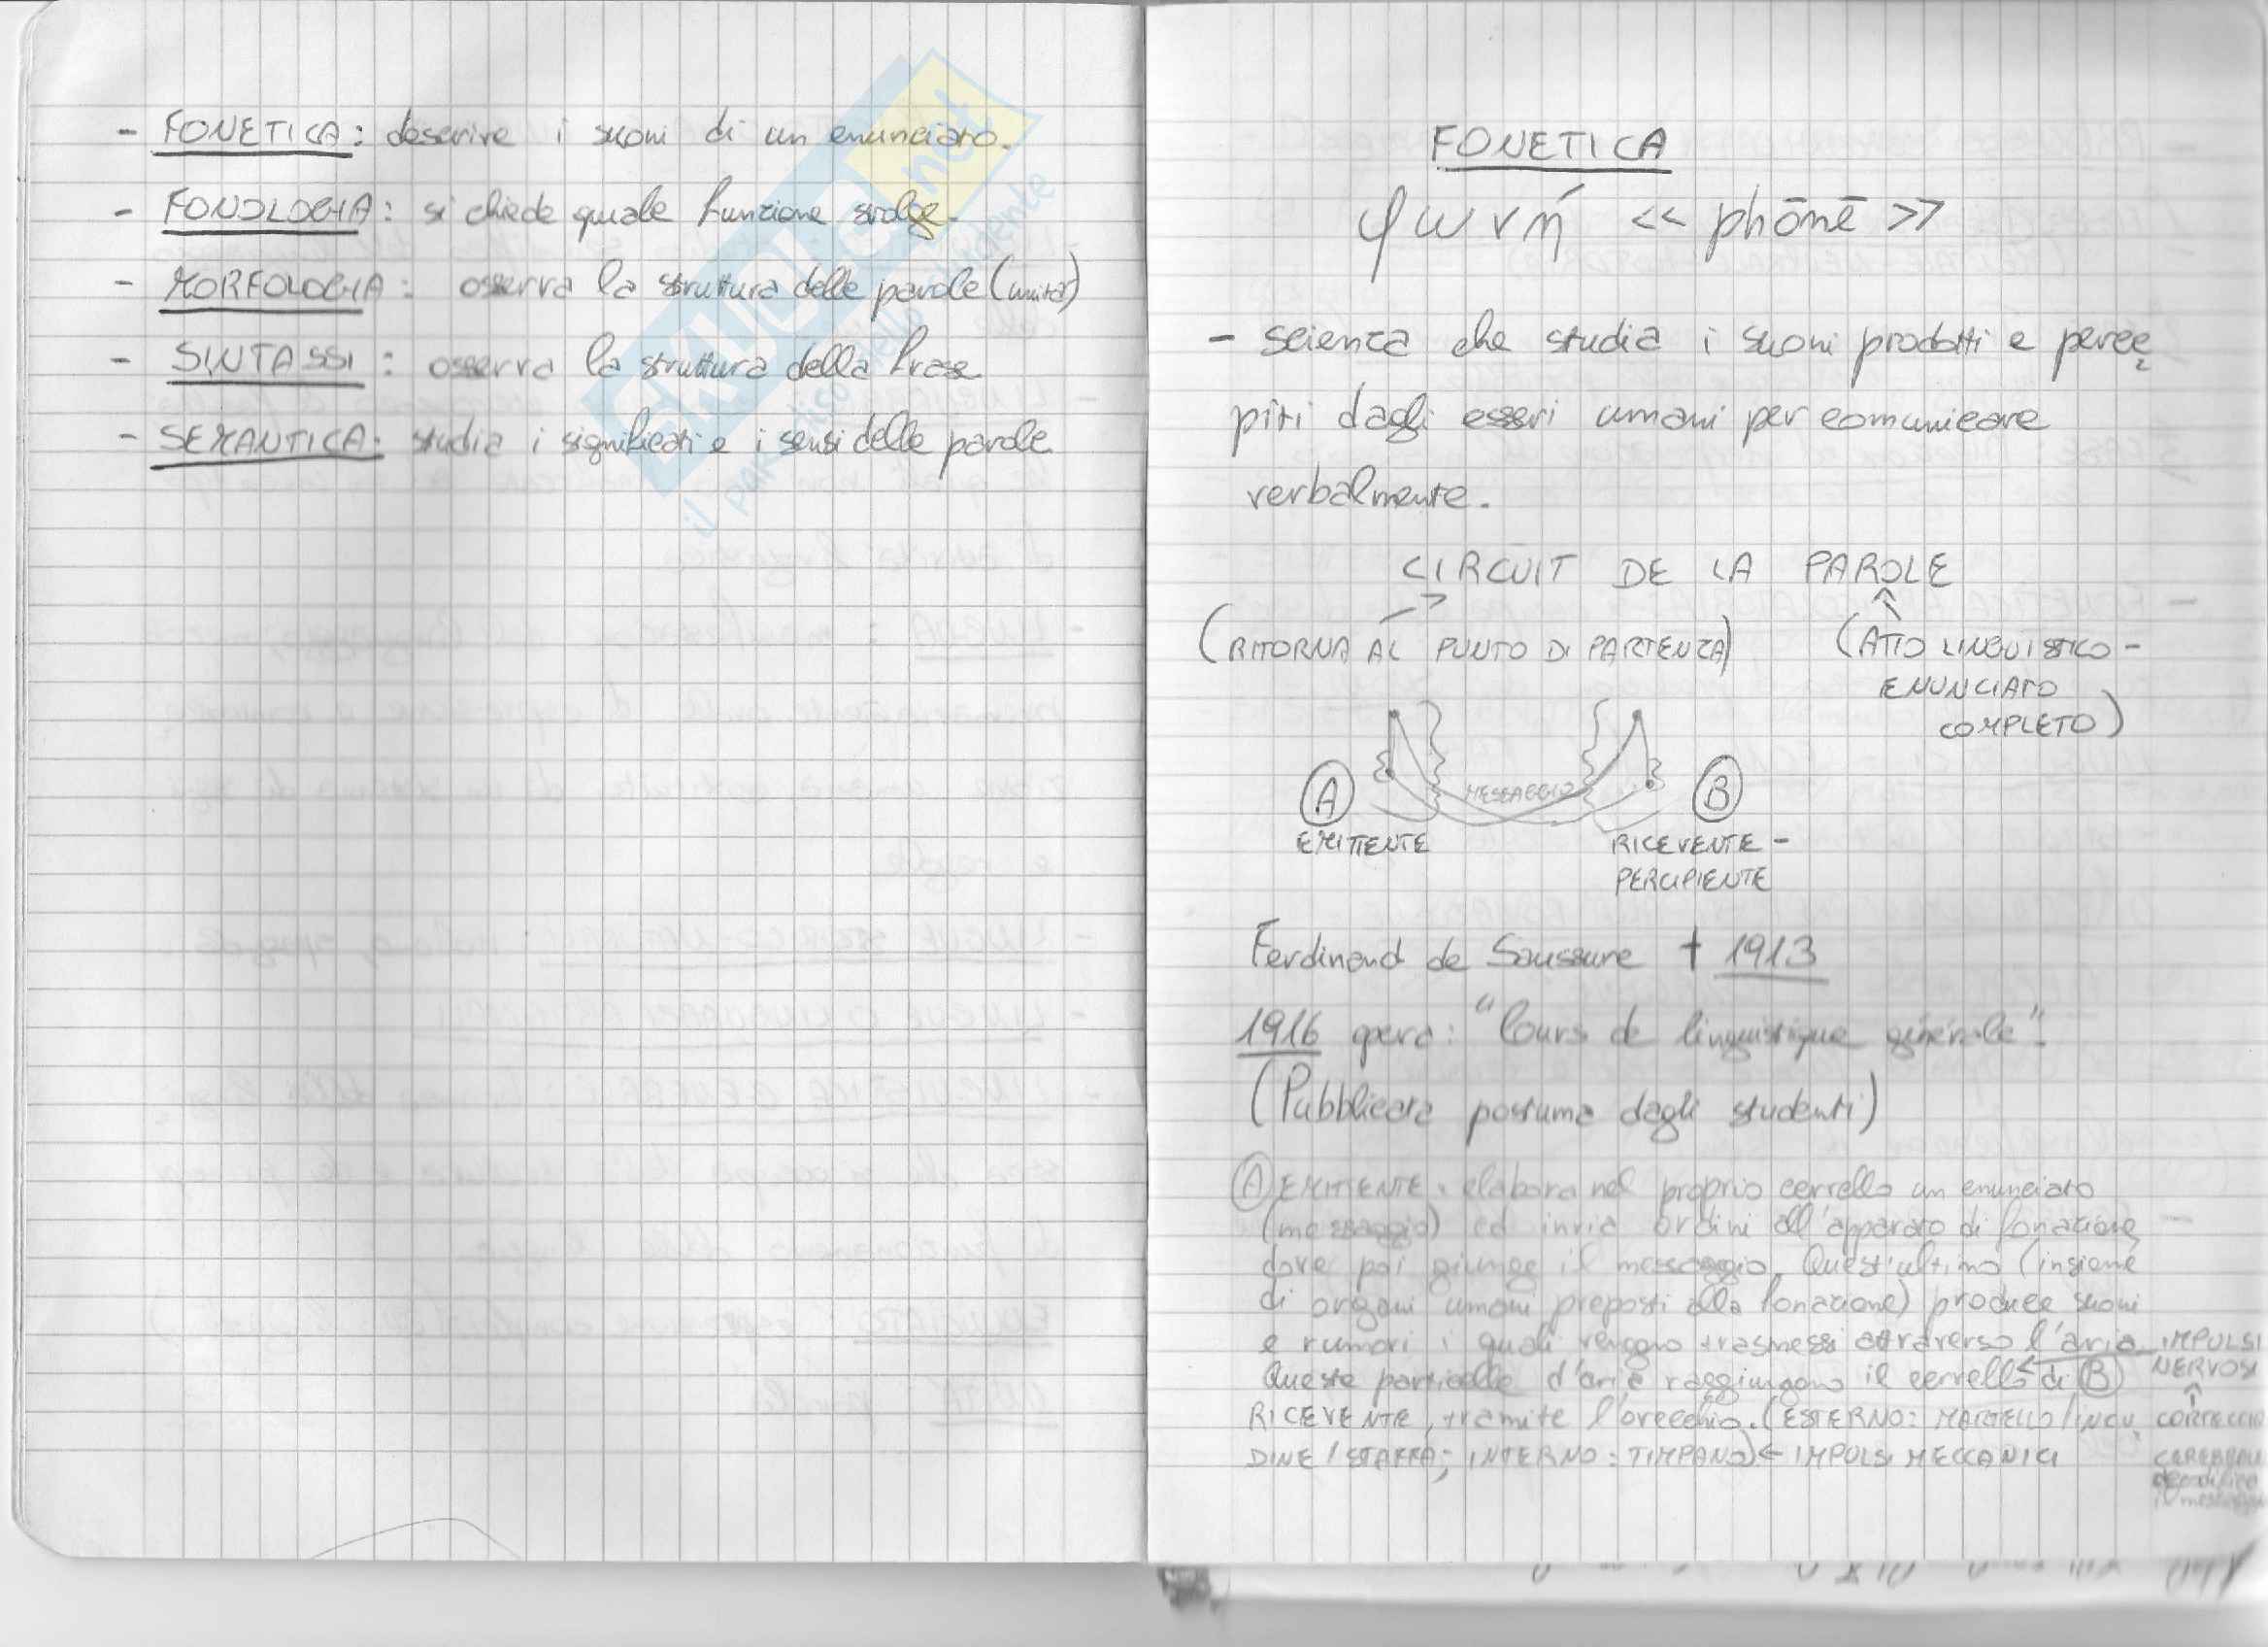 - FONETICA: descrive i suoni di un enunciato.
- FONOLOGIA: si chiede quale funzione svolge.
- MORFOLOGIA: osserva la struttura delle parole (unità)
- SINTASSI: osserva la struttura della frase
- SEMANTICA: studia i significati e i sensi delle parole.
SKUOLA.net
il paradiso dello studente
FONETICA
φωνή << phōnē >>
- scienza che studia i suoni prodotti e perce
piti dagli esseri umani per comunicare
verbalmente.
CIRCUIT DE LA PAROLE
(RITORNA AL PUNTO DI PARTENZA) (ATTO LINGUISTICO -
ENUNCIATO
COMPLETO)
MESSAGGIO
A B
EMITTENTE RICEVENTE -
PERCIPIENTE
Ferdinand de Saussure † 1913
1916 opera: "Cours de linguistique générale".
(Pubblicata postuma dagli studenti)
A EMITTENTE: elabora nel proprio cervello un enunciato
(messaggio) ed invia ordini all'apparato di fonazione,
dove poi giunge il messaggio. Quest'ultimo (insieme
di organi umani preposti alla fonazione) produce suoni
e rumori i quali vengono trasmessi attraverso l'aria. IMPULSI
Queste particelle d'aria raggiungono il cervello di B NERVOSI
RICEVENTE, tramite l'orecchio. (ESTERNO: MARTELLO/INCU CORTECCIA
DINE/STAFFA; INTERNO: TIMPANO) ← IMPULSI MECCANICI CEREBRALE
decodifica
il messaggio